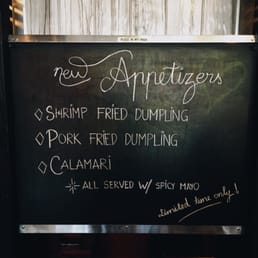 new Appetizers
SHRIMP FRIED DUMPLING
PORK FRIED DUMPLING
CALAMARI
ALL SERVED W/ SPICY MAYO
limited time only!